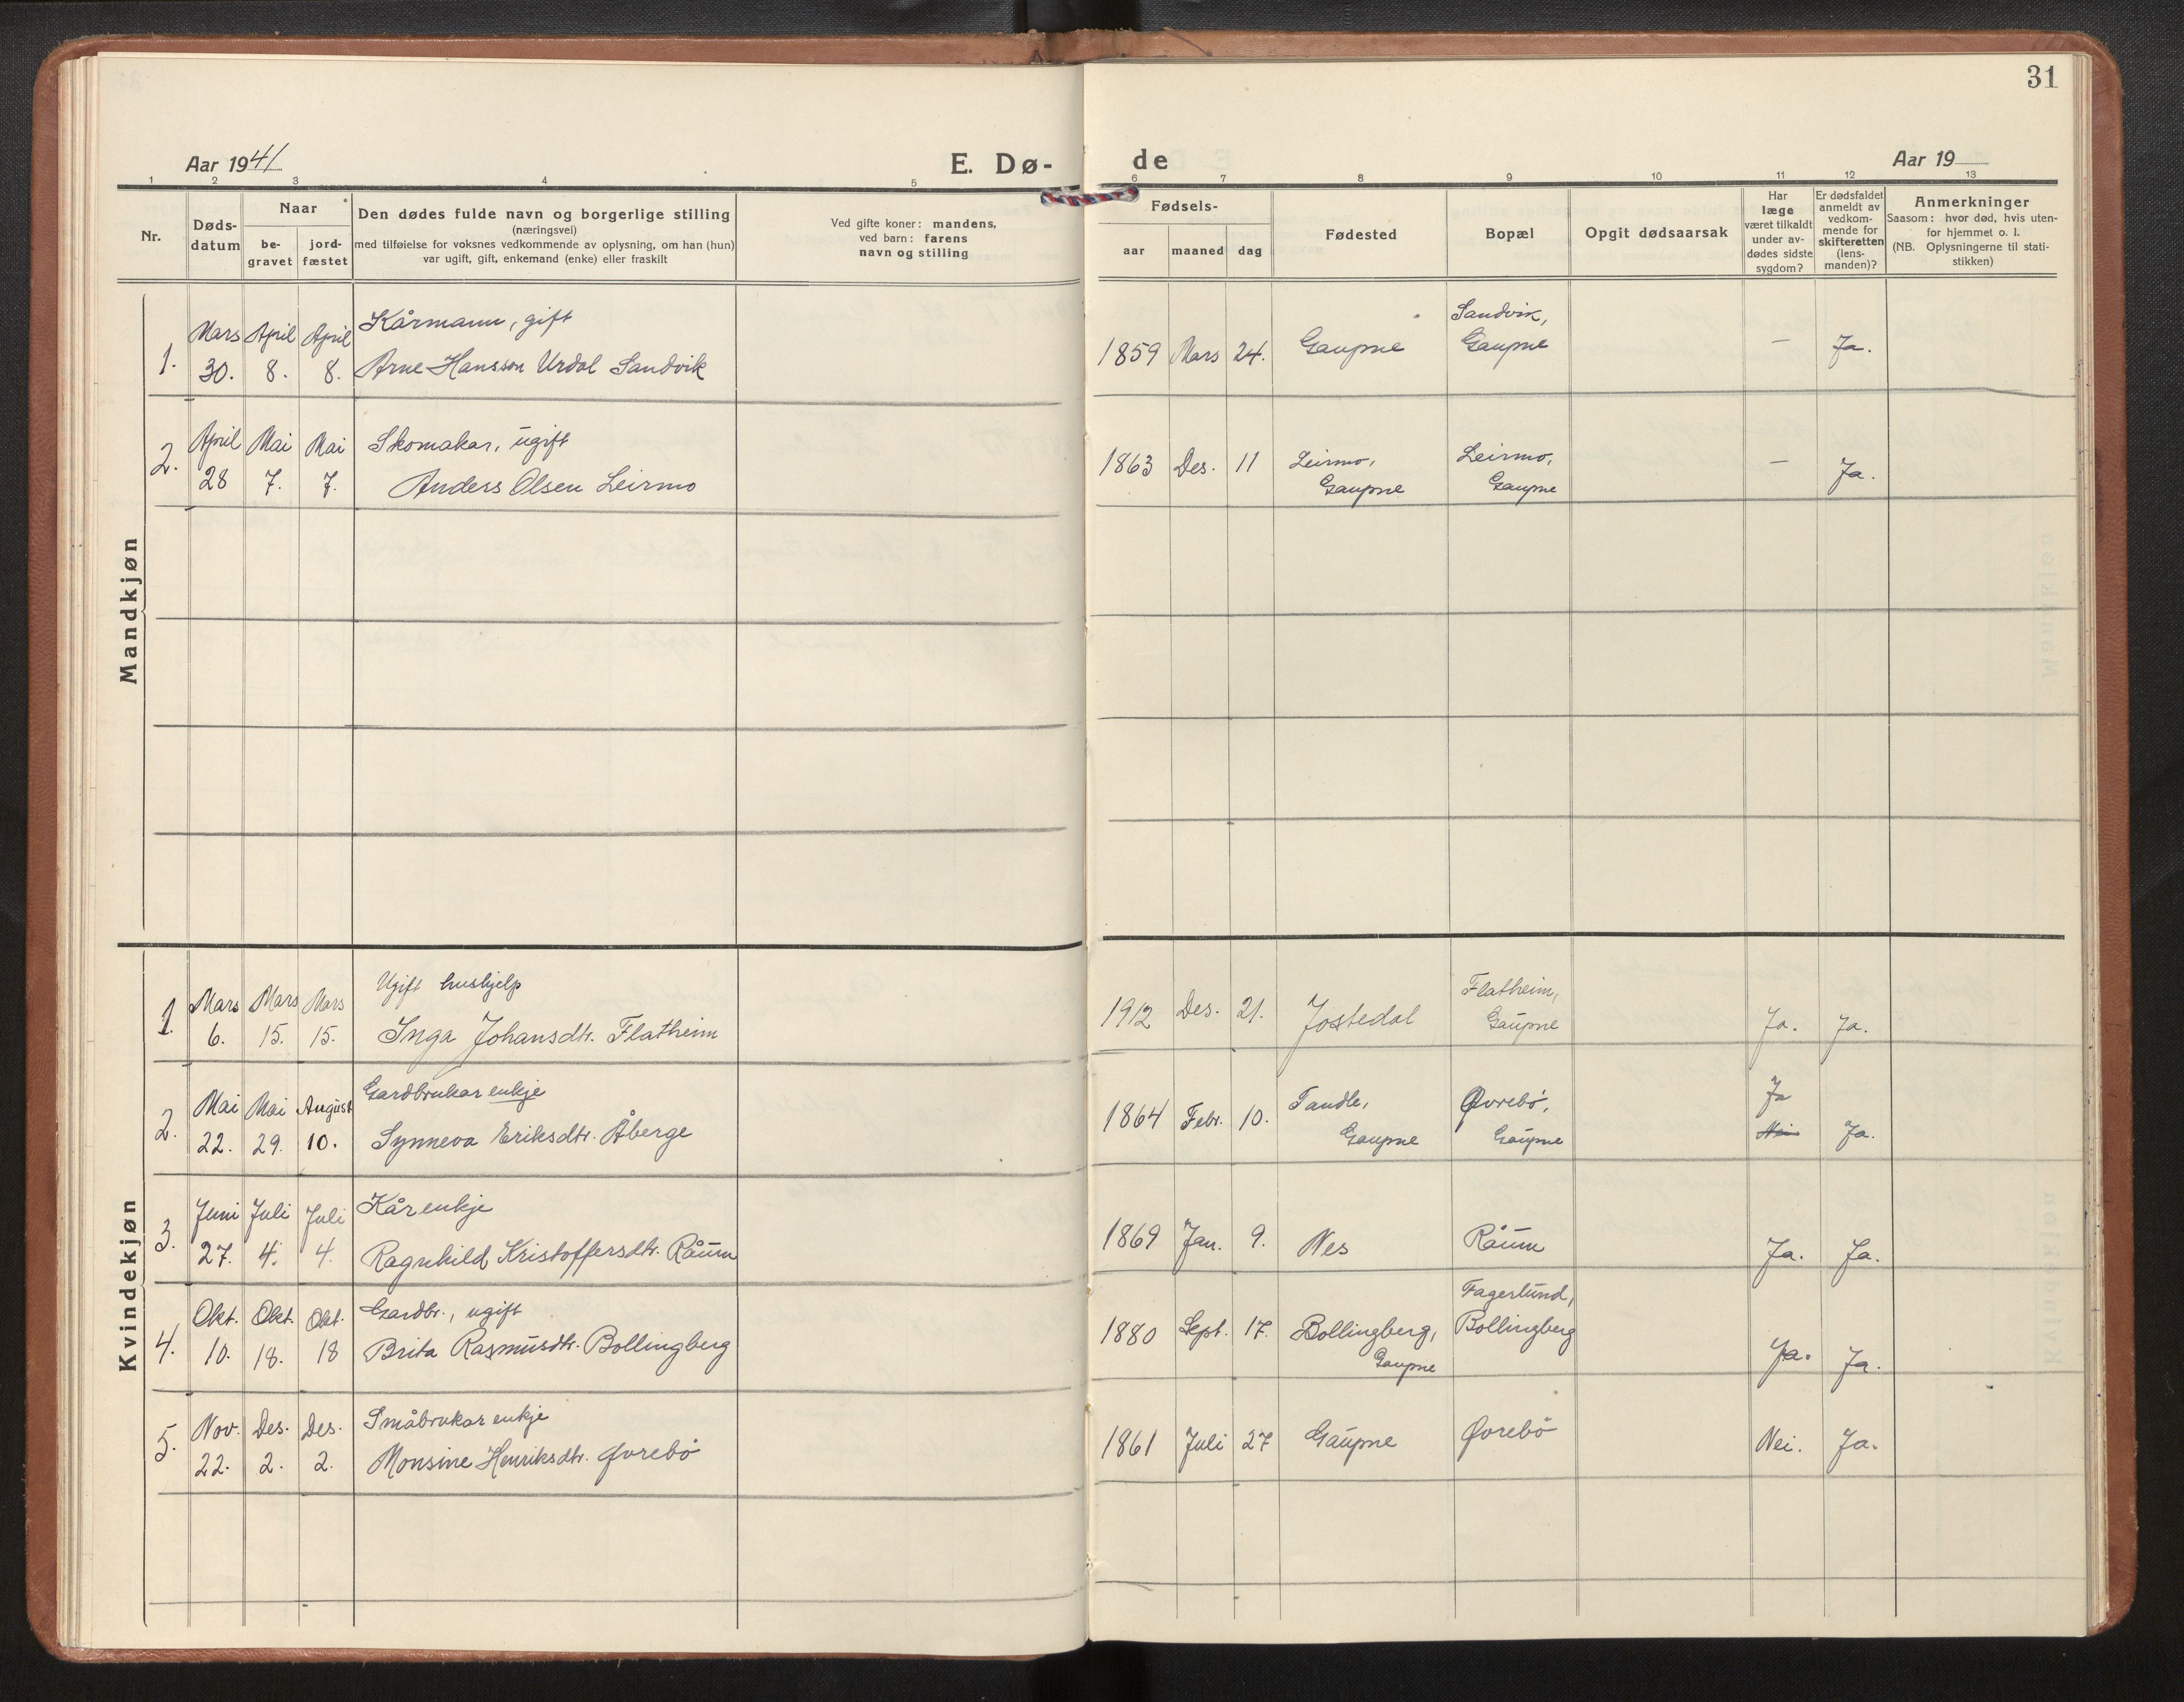 31
Aar 1941
E. Dø-
de
Aar 19
1 2 3 4 5 6 7 8 9 10 11 12 13
Nr.
Døds-
datum
Naar
be-
gravet
jord-
fæstet
Den dødes fulde navn og borgerlige stilling
(næringsvei)
med tilføielse for voksnes vedkommende av oplysning, om han (hun)
var ugift, gift, enkemand (enke) eller fraskilt
Ved gifte koner: mandens,
ved barn: farens
navn og stilling
Fødsels-
aar maaned dag
Fødested
Bopæl
Opgit dødsaarsak
Har
læge
været tilkaldt
under av-
dødes sidste
sygdom?
Er dødsfaldet
anmeldt av
vedkom-
mende for
skifteretten
(lens-
manden)?
Anmerkninger
Saasom: hvor død, hvis uten-
for hjemmet o. l.
(NB. Oplysningerne til stati-
stikken)
Mandkjøn
Mars April April Kårmann, gift Sandvik,
1. 30. 8. 8. Arne Hansson Urdal Sandvik 1859 Mars 24. Gaupne Gaupne — Ja.
April Mai Mai Skomakar, ugift
2. 28 7. 7. Anders Olsen Leirmo 1863 Des. 11 Leirmo, Leirmo, — Ja.
Gaupne Gaupne
Kvindekjøn
Mars Mars Mars Ugift hushjelp Flatheim,
1. 6. 15. 15. Inga Johansdtr. Flatheim 1912 Des. 21. Jostedal Gaupne Ja. Ja.
Mai Mai August Gardbrukar enkje Tandle, Øvrebö, Ja
2. 22. 29. 10. Synneva Eriksdtr. Åberge 1864 Febr. 10. Gaupne Gaupne Nei Ja.
Juni Juli Juli Kårenkje
3. 27. 4. 4. Ragnhild Kristoffersdtr. Råum 1869 Jan. 9. Nes Råum Ja. Ja.
Okt. Okt. Okt. Gardbr., ugift Fagerlund,
4. 10. 18. 18 Brita Rasmusdtr. Bollingberg 1880 Sept. 17. Bollingberg, Bollingberg
Gaupne Ja. Ja.
Nov. Des. Des. Småbrukar enkje
5. 22. 2. 2. Monsine Henriksdtr. Øvrebö 1861 Juli 27 Gaupne Øvrebö Nei. Ja.